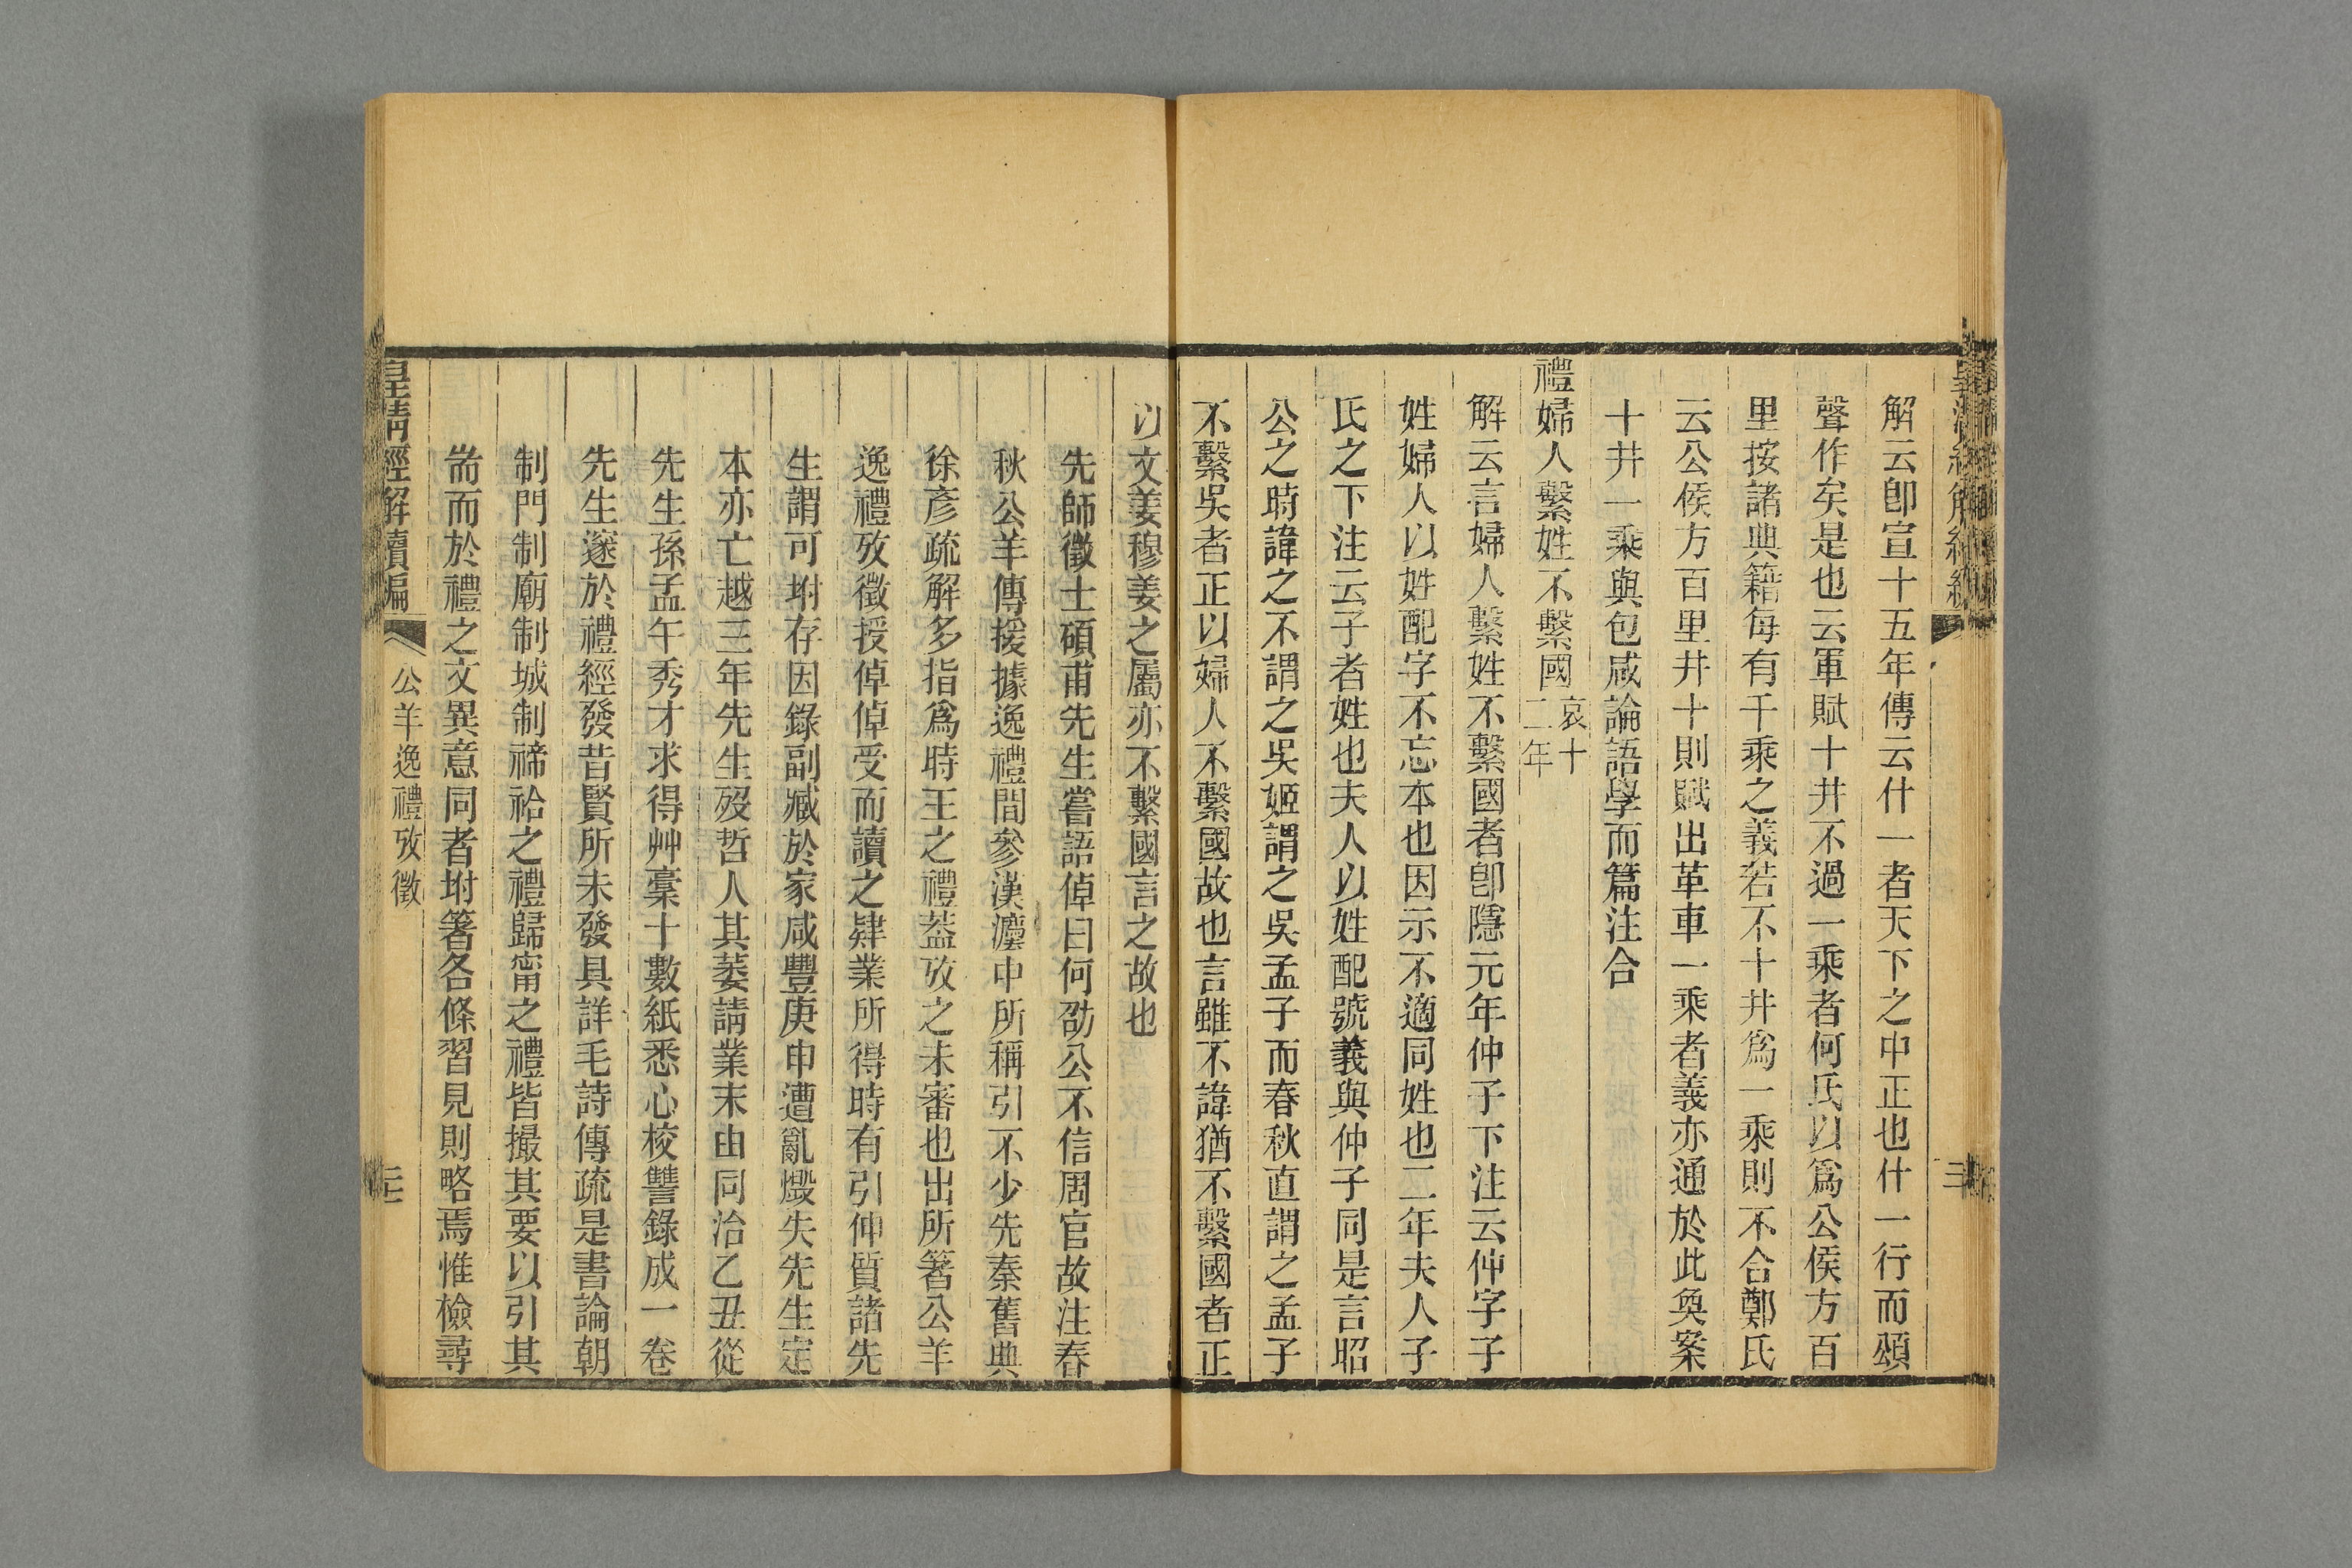 解云卽宣十五年傳云什一者天下之中正也什一行而頌
聲作矣是也云軍賦十井不過一乘者何氏以爲公侯方百
里按諸典籍每有千乘之義若不十井爲一乘則不合鄭氏
云公侯方百里井十則賦出革車一乘者義亦通於此奐案
十井一乘與包咸論語學而篇注合
禮婦人繫姓不繫國哀十二年
解云言婦人繫姓不繫國者卽隱元年仲子下注云仲字子
姓婦人以姓配字不忘本也因示不適同姓也二年夫人子
氏之下注云子者姓也夫人以姓配號義與仲子同是言昭
公之時諱之不謂之吳姬謂之吳孟子而春秋直謂之孟子
不繫吳者正以婦人不繫國故也言雖不諱猶不繫國者正
以文姜穆姜之屬亦不繫國言之故也
先師徵士碩甫先生嘗語倬曰何劭公不信周官故注春
秋公羊傳援據逸禮間參漢灋中所稱引不少先秦舊典
徐彥疏解多指爲時王之禮葢攷之未審也出所箸公羊
逸禮攷徵授倬倬受而讀之肄業所得時有引伸質諸先
生謂可坿存因錄副臧於家咸豐庚申遭亂燬失先生定
本亦亡越三年先生歿哲人其萎請業末由同治乙丑從
先生孫孟午秀才求得艸稾十數紙悉心校讐錄成一卷
先生邃於禮經發昔賢所未發具詳毛詩傳疏是書論朝
制門制廟制城制禘祫之禮歸甯之禮皆撮其要以引其
耑而於禮之文異意同者坿箸各條習見則略焉惟檢尋
皇清經解續編 公羊逸禮攷徵